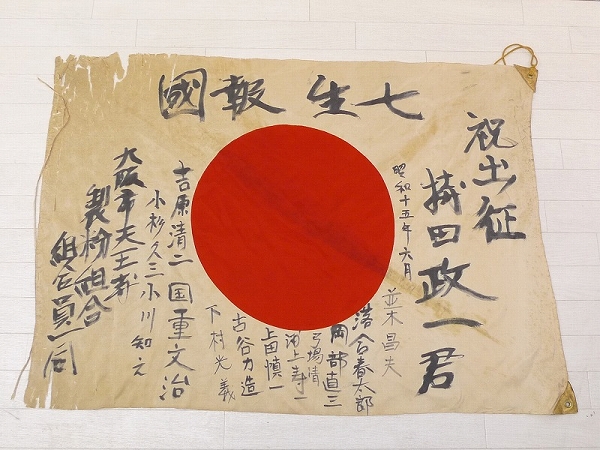 七生報國
祝出征
田政一君
昭和十五年六月
並木昌夫
落合春太郎
岡部直三
弓場清
池上寿一
上田慎一
古谷力造
下村光義
国重文治
吉原清二
小杉久三
小川知之
大阪市天王寺
製粉組合
組合員一同